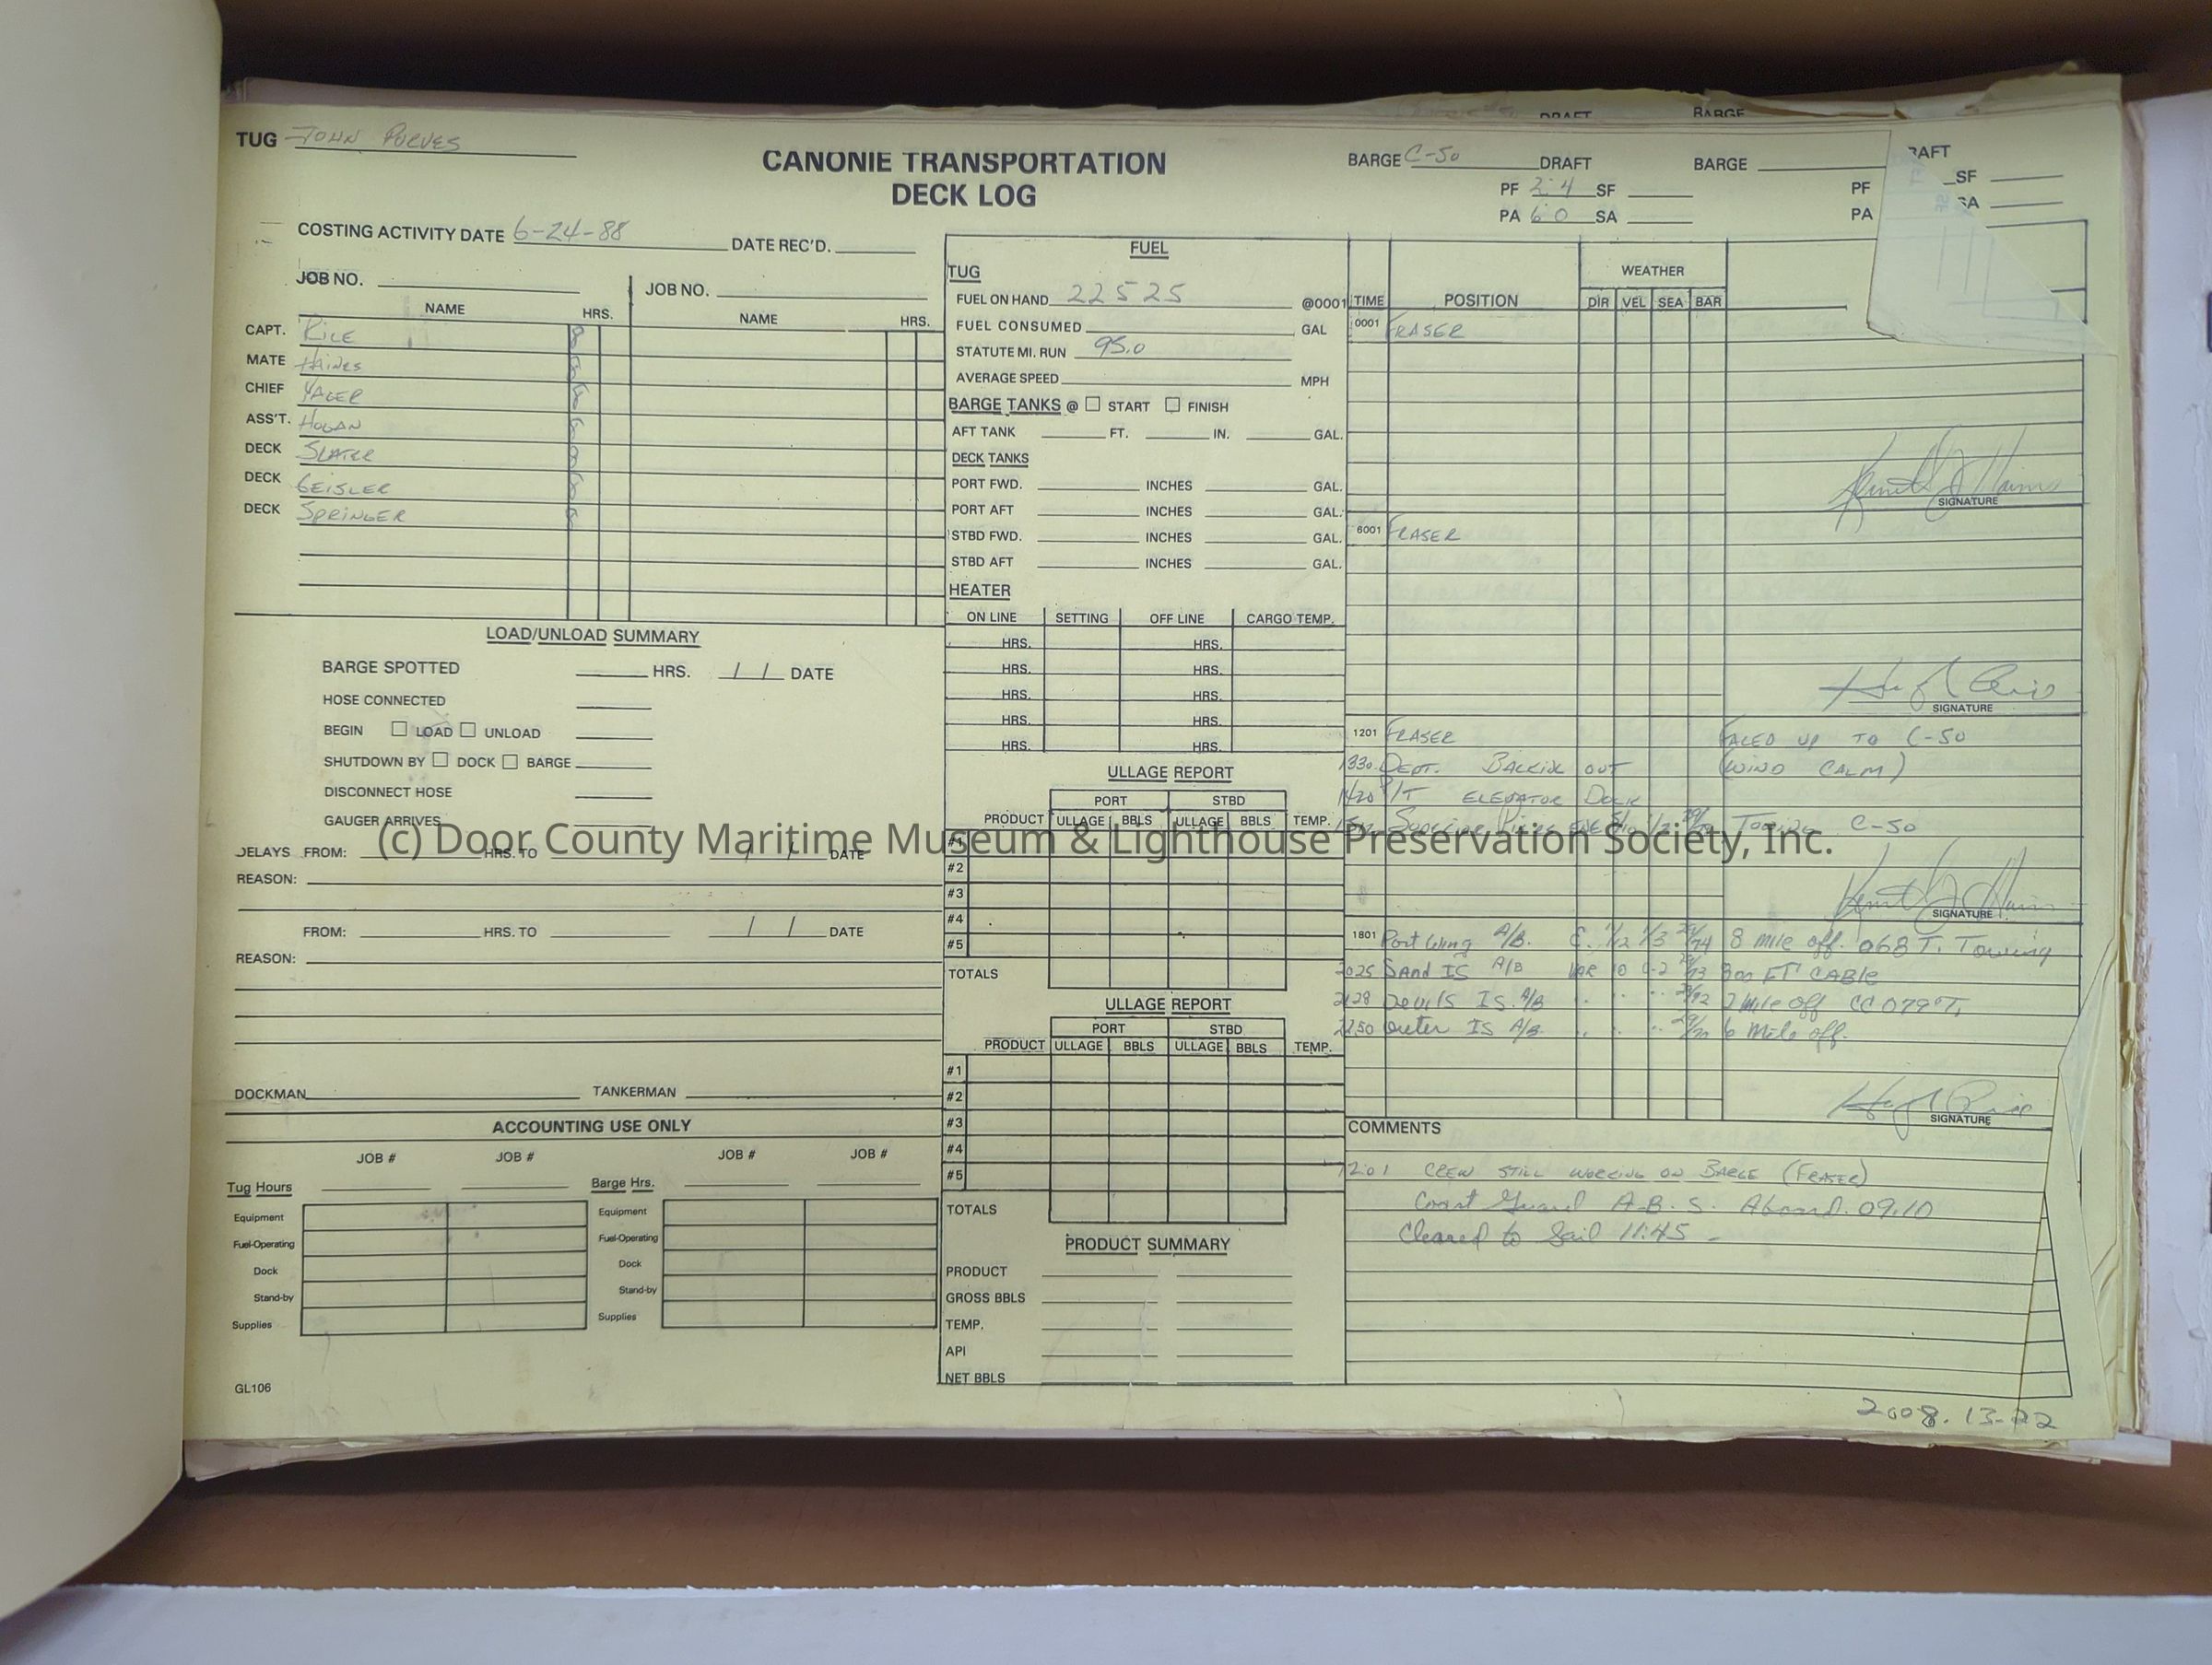 TUG JOHN PURVES
CANONIE TRANSPORTATION
DECK LOG
BARGE C-50 DRAFT
PF 2 4 SF
PA 6 0 SA
BARGE
DRAFT
BARGE
RAFT
PF SF
PA SA
COSTING ACTIVITY DATE 6-24-88 DATE REC'D.
JOB NO. JOB NO.
NAME HRS. NAME HRS.
CAPT. RICE 8
MATE HAINES 8
CHIEF YAGER 8
ASS'T. HOGAN 8
DECK SLATER 8
DECK GEISLER 8
DECK SPRINGER 8
LOAD/UNLOAD SUMMARY
BARGE SPOTTED HRS. / / DATE
HOSE CONNECTED
BEGIN LOAD UNLOAD
SHUTDOWN BY DOCK BARGE
DISCONNECT HOSE
GAUGER ARRIVES
DELAYS FROM: HRS. TO / / DATE
REASON:
FROM: HRS. TO / / DATE
REASON:
DOCKMAN TANKERMAN
ACCOUNTING USE ONLY
JOB # JOB # JOB # JOB #
Tug Hours Barge Hrs.
Equipment Equipment
Fuel-Operating Fuel-Operating
Dock Dock
Stand-by Stand-by
Supplies Supplies
GL106
FUEL
TUG
FUEL ON HAND 22525 @0001
FUEL CONSUMED GAL
STATUTE MI. RUN 95.0
AVERAGE SPEED MPH
BARGE TANKS @ START FINISH
AFT TANK FT. IN. GAL.
DECK TANKS
PORT FWD. INCHES GAL.
PORT AFT INCHES GAL.
STBD FWD. INCHES GAL.
STBD AFT INCHES GAL.
HEATER
ON LINE SETTING OFF LINE CARGO TEMP.
HRS. HRS.
HRS. HRS.
HRS. HRS.
HRS. HRS.
HRS. HRS.
ULLAGE REPORT
PORT STBD
PRODUCT ULLAGE BBLS ULLAGE BBLS TEMP.
#1
#2
#3
#4
#5
TOTALS
ULLAGE REPORT
PORT STBD
PRODUCT ULLAGE BBLS ULLAGE BBLS TEMP.
#1
#2
#3
#4
#5
TOTALS
PRODUCT SUMMARY
PRODUCT
GROSS BBLS
TEMP.
API
NET BBLS
WEATHER
TIME POSITION DIR VEL SEA BAR
0001 FRASER
SIGNATURE
6001 FRASER
SIGNATURE
1201 FRASER FACED UP TO C-50
1330 DEPT. BACKING OUT (WIND CALM)
1420 P/T ELEVATOR DOCK
SUPERIOR TOWING C-50
SIGNATURE
1801 Port Wing A/B. E. 1/3 29/74 8 mile off. 068 T. Towing
2025 Sand IS A/B VAR 10 FT CABLE
2128 Devils IS. A/B 2 Mile off CC 079° T.
2250 Outer IS A/B. 6 Mile off.
SIGNATURE
COMMENTS
1201 CREW STILL WORKING ON BARGE (FRASER)
Coast Guard A.B.S. Aboard 09.10
Cleared to Sail 11:45 -
2008.13-22
(c) Door County Maritime Museum & Lighthouse Preservation Society, Inc.